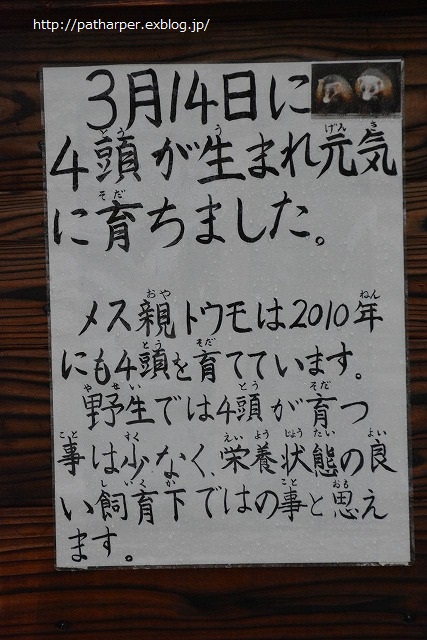 http://patharper.exblog.jp/
3月14日に
4頭が生まれ元気
に育ちました。
メス親トウモは2010年
にも4頭を育てています。
野生では4頭が育つ
事は少なく、栄養状態の良
い飼育下ではの事と思え
ます。